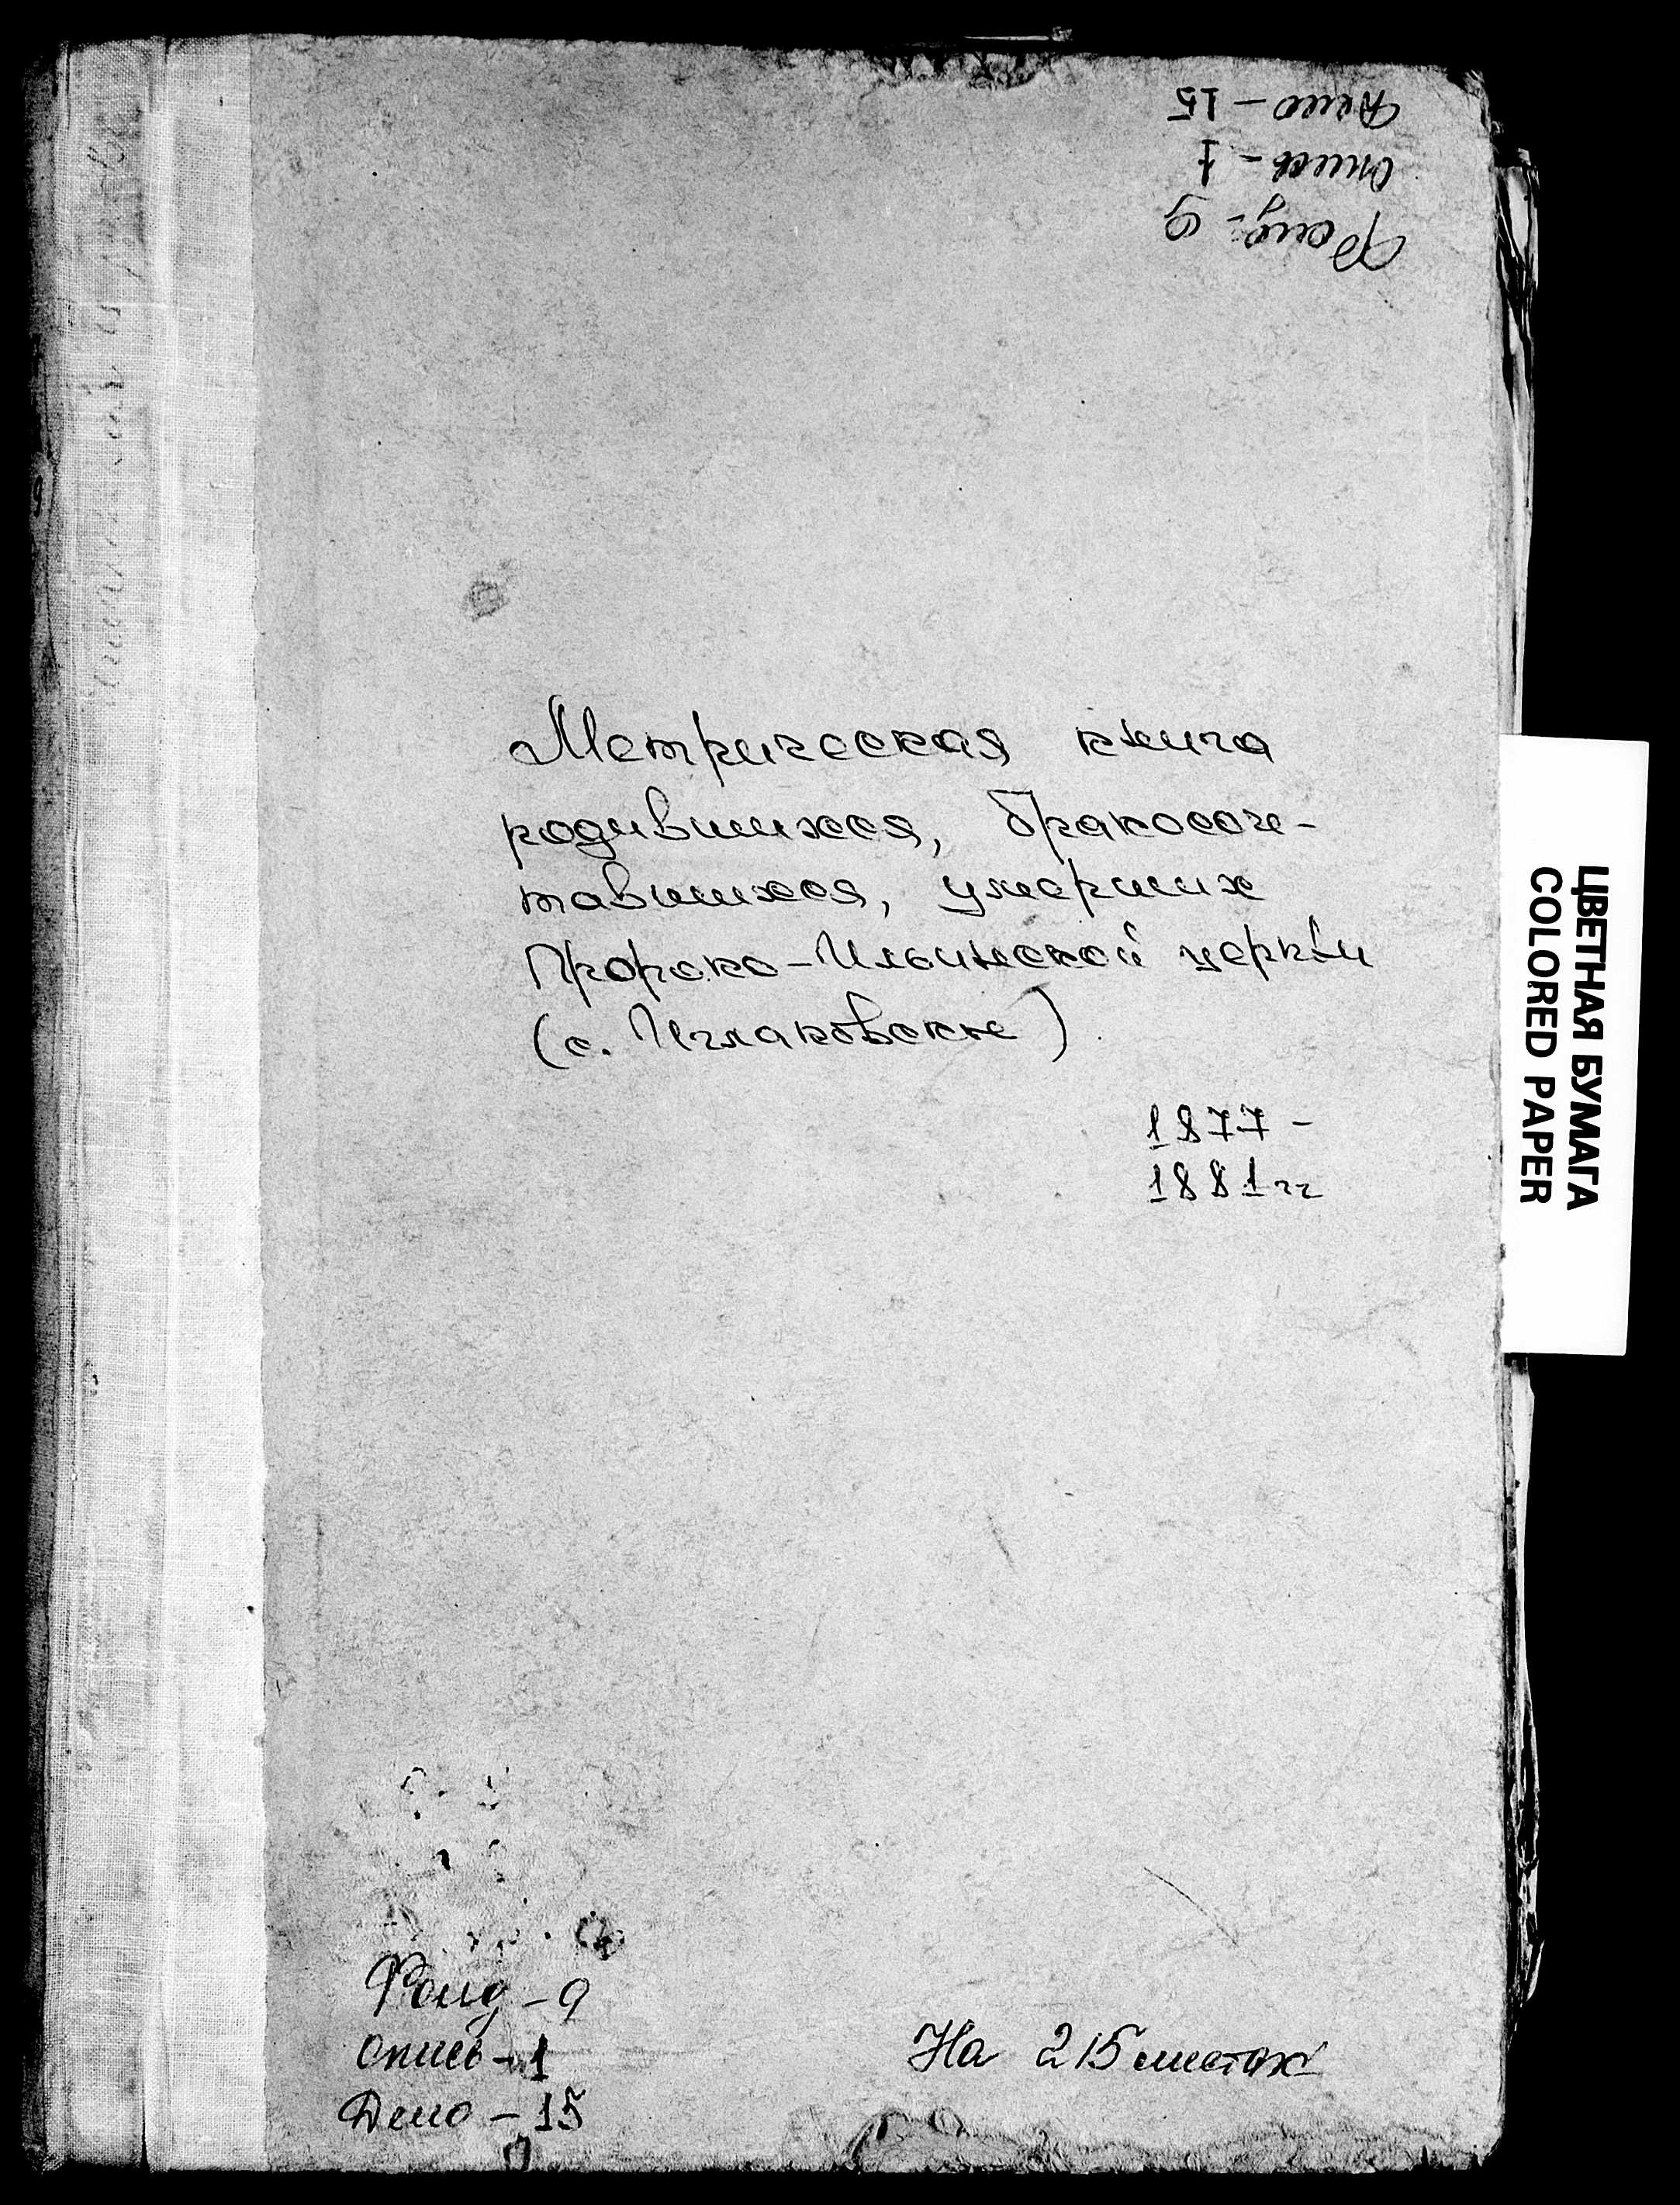 Дело - 15
опись - 1
Фонд - 9
Метрическая книга
родившихся, бракосоче-
тавшихся, умерших
Пророко-Ильинской церкви
(с. Иглаковское)
1877 -
1881 гг
ЦВЕТНАЯ БУМАГА
COLORED PAPER
Фонд - 9
опись - 1
Дело - 15
На 215 листах